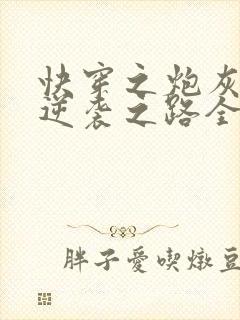 快穿之炮灰
逆袭之路全
胖子愛喫燉豆